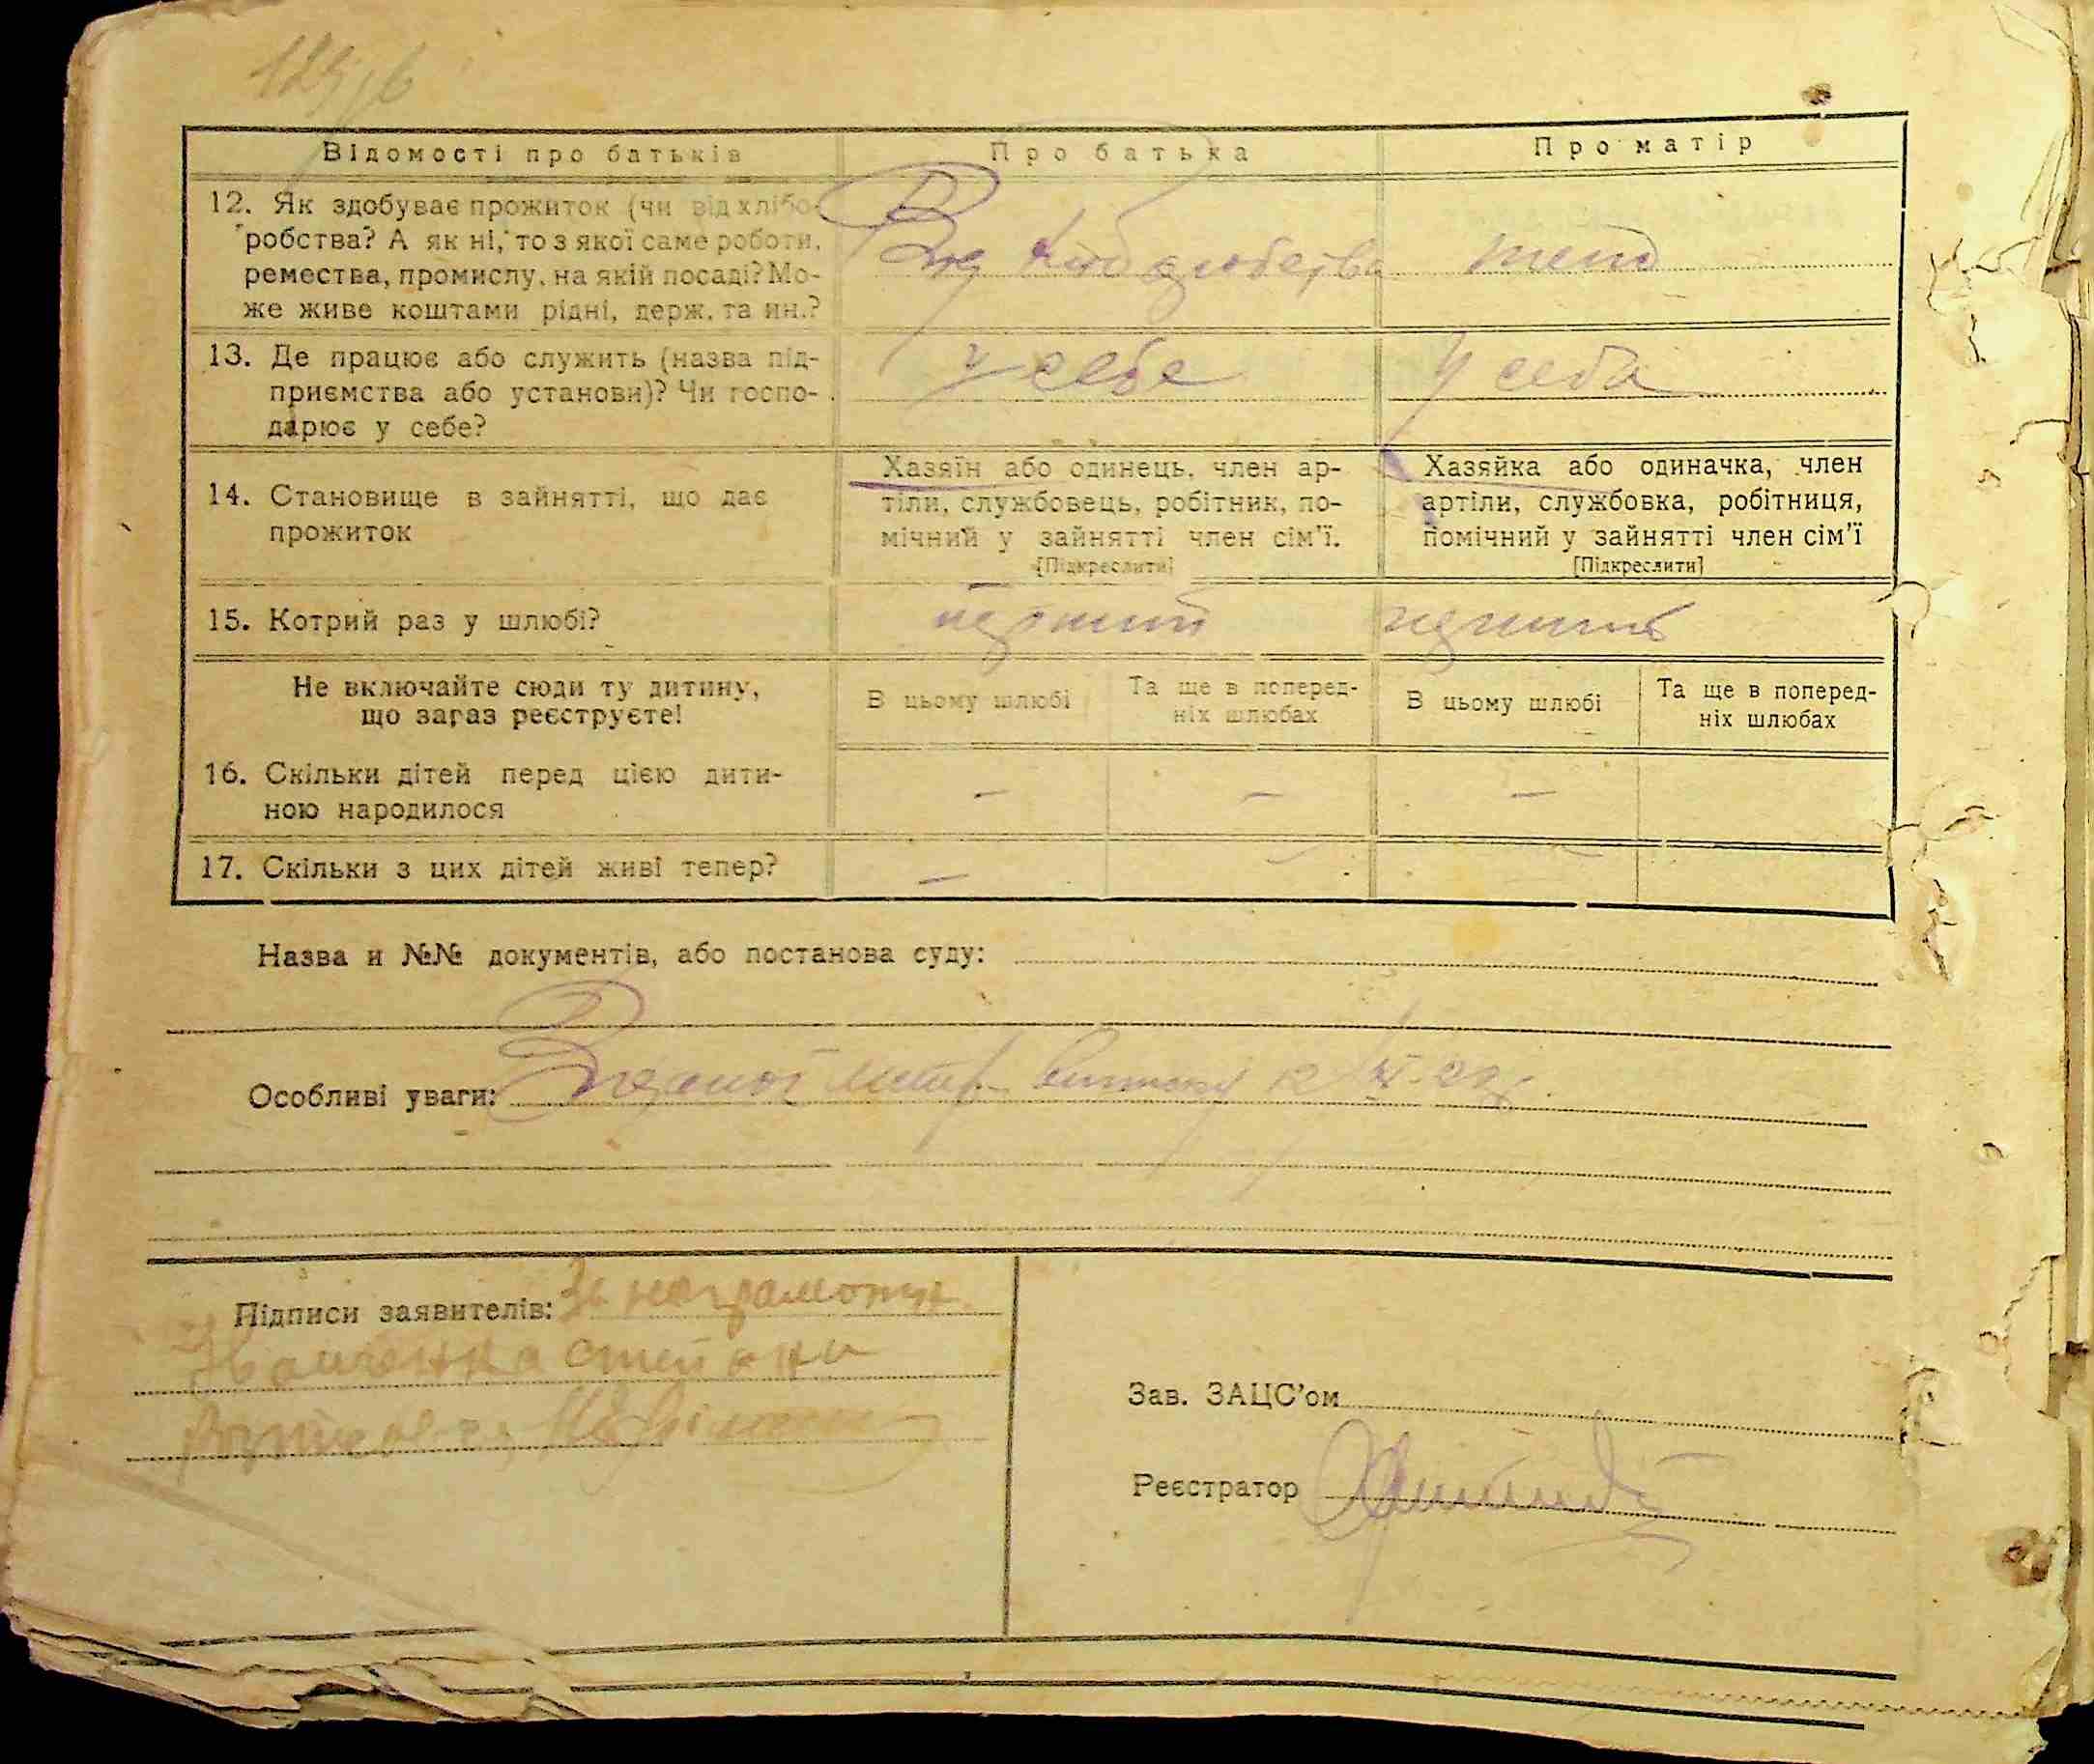 Відомості про батьків Про батька Про матір
12. Як здобуває прожиток (чи від хлібо-
робства? А як ні, то з якої саме роботи,
ремества, промислу, на якій посаді? Мо-
же живе коштами рідні, держ. та ин.?
Від хліборобства
13. Де працює або служить (назва під-
приємства або установи)? Чи госпо-
дарює у себе?
у себе у себе
14. Становище в зайнятті, що дає
прожиток
Хазяїн або одинець, член ар-
тіли, службовець, робітник, по-
мічний у зайнятті член сім'ї.
[Підкреслити]
Хазяйка або одиначка, член
артіли, службовка, робітниця,
помічний у зайнятті член сім'ї
[Підкреслити]
15. Котрий раз у шлюбі?
перший
Не включайте сюди ту дитину,
що зараз реєструєте!
В цьому шлюбі
Та ще в поперед-
ніх шлюбах
В цьому шлюбі
Та ще в поперед-
ніх шлюбах
16. Скільки дітей перед цією дити-
ною народилося
– – –
17. Скільки з цих дітей живі тепер?
– – –
Назва и №№ документів, або постанова суду:
Особливі уваги:
Підписи заявителів: За неграмотн.
Степана
Зав. ЗАЦС'ом
Реєстратор